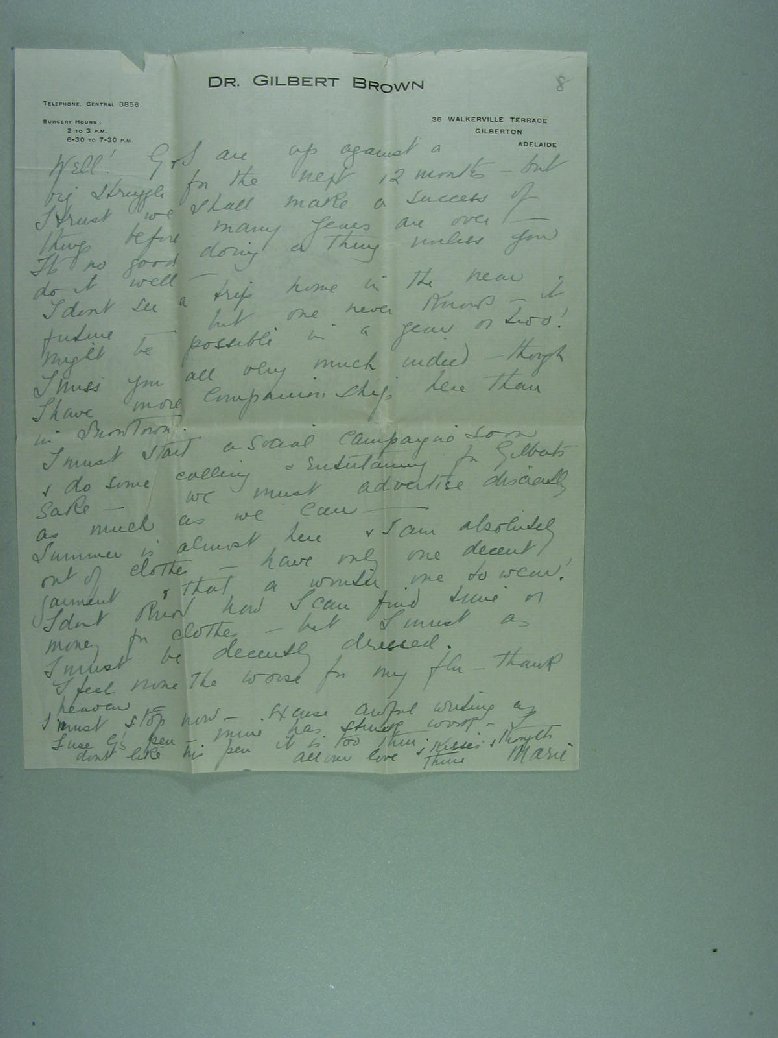 DR. GILBERT BROWN
8
TELEPHONE, CENTRAL 3858
SURGERY HOURS:
2 TO 3 P.M.
6-30 TO 7-30 P.M.
36 WALKERVILLE TERRACE
GILBERTON
ADELAIDE
Well! G & I are up against a
big struggle for the next 12 months – but
I trust we shall make a success of
things before many years are over –
It's no good doing a thing unless you
do it well –
I dont see a trip home in the near
future – but one never knows – it
might be possible in a year or two!
I miss you all very much indeed though
I have more companionship here than
in Snowtown.
I must start a social campaign soon
& do some calling & entertaining for Gilberts
sake – we must advertise discreetly
as much as we can –
Summer is almost here & I am absolutely
out of clothes – have only one decent
garment & that a winter one to wear!
I dont know how I can find time or
money for clothes – but I must as
I must be decently dressed.
I feel none the worse for my flu – thank
heaven –
I must stop now – Excuse awful writing as
I use G's pen – mine has struck work – I
dont like his pen it is too thin.
all our love & kisses & thoughts
Thine Marie